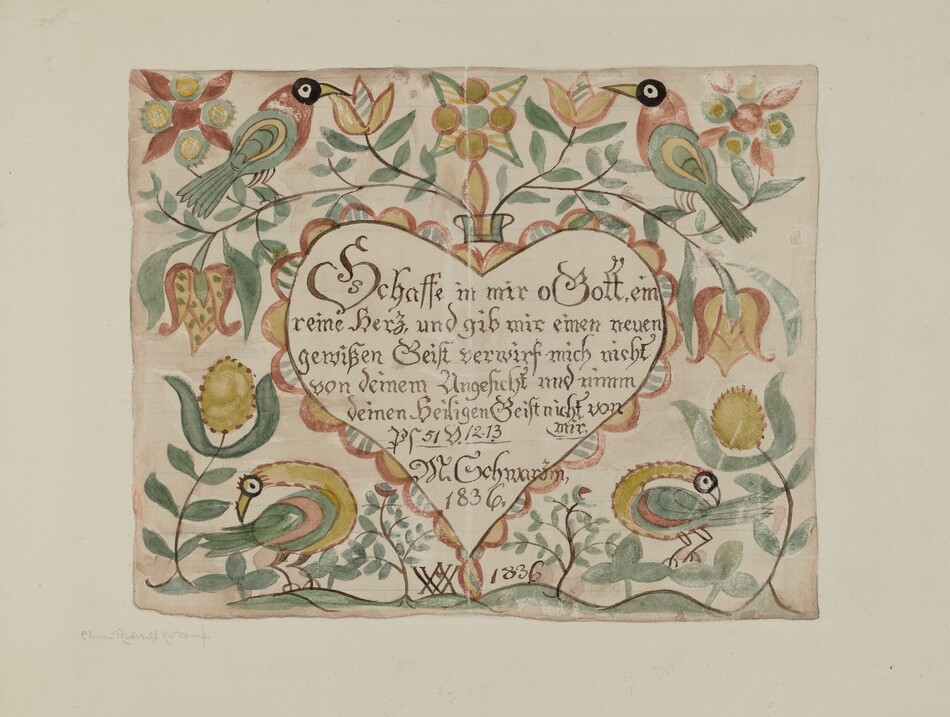 Schaffe in mir o Gott, ein
reine Herz, und gib mir einen neuen
gewißen Geist verwirf mich nicht
von deinem Angesicht und nimm
deinen Heiligen Geist nicht von
mir.
Ps 51 V. 12-13
M. Schwarm,
1836.
1836